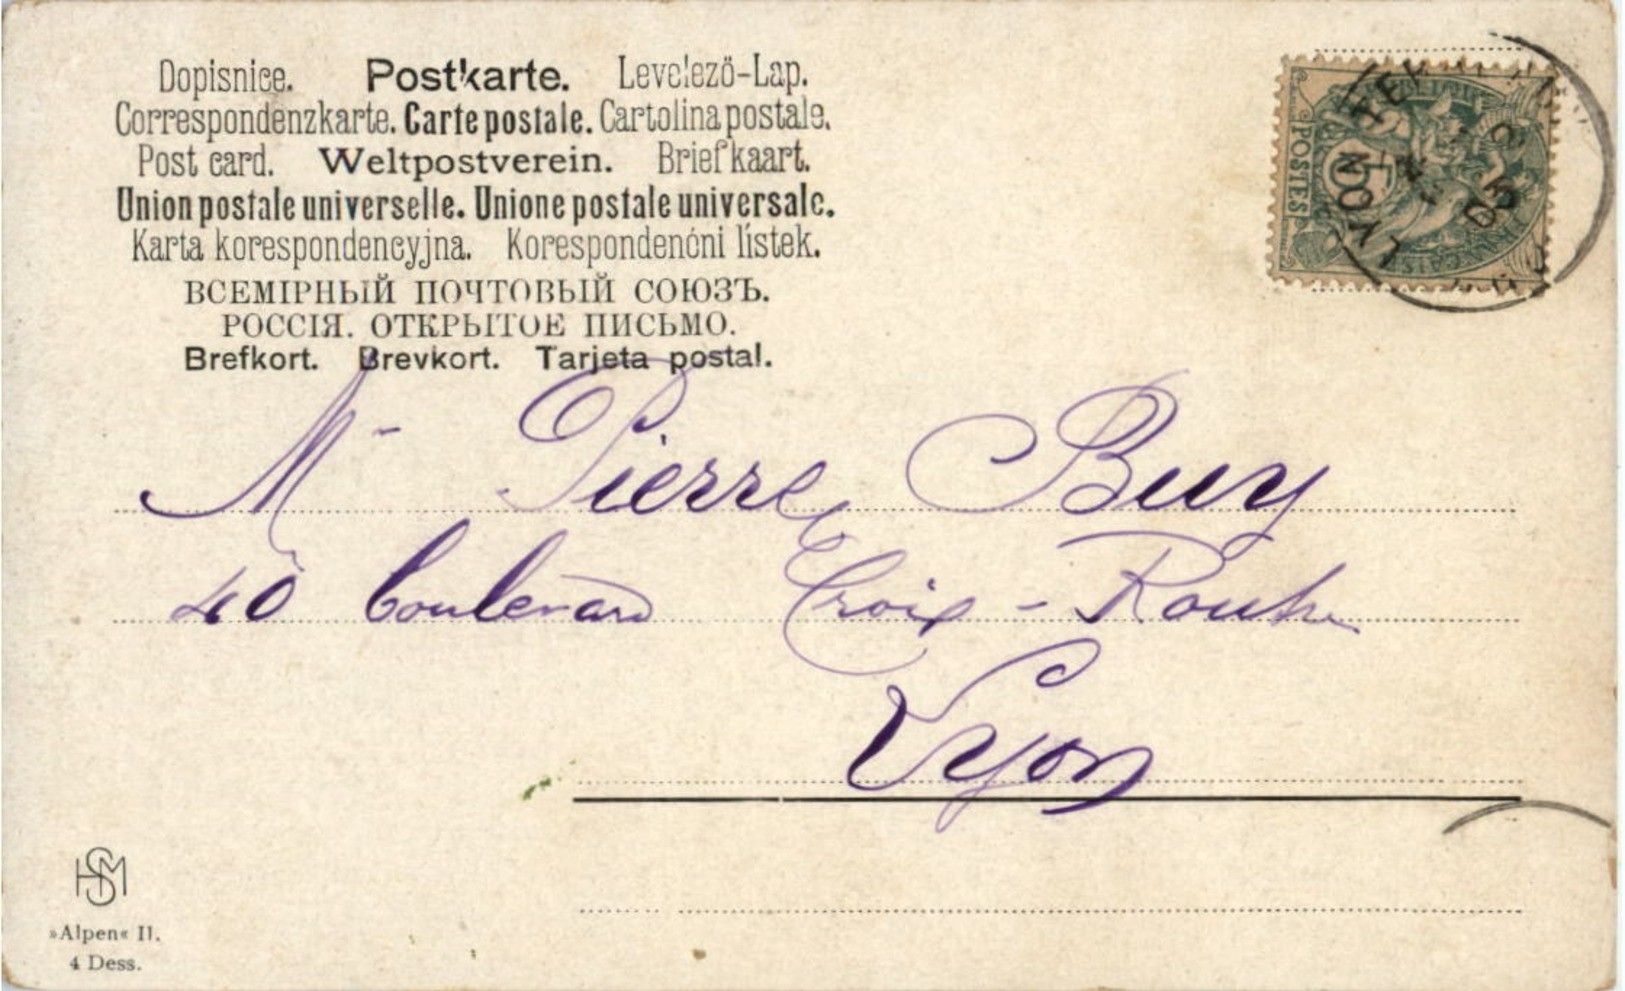 Dopisnice. Postkarte. Levelező-Lap.
Correspondenzkarte. Carte postale. Cartolina postale.
Post card. Weltpostverein. Briefkaart.
Union postale universelle. Unione postale universale.
Karta korespondencyjna. Korespondenčni listek.
ВСЕМІРНЫЙ ПОЧТОВЫЙ СОЮЗЪ.
РОССІЯ. ОТКРЫТОЕ ПИСЬМО.
Brefkort. Brevkort. Tarjeta postal.
POSTES
5
LYON
05
M- Pierre Buy
40 boulevard Croix-Rousse
Lyon
HSM
»Alpen« II.
4 Dess.